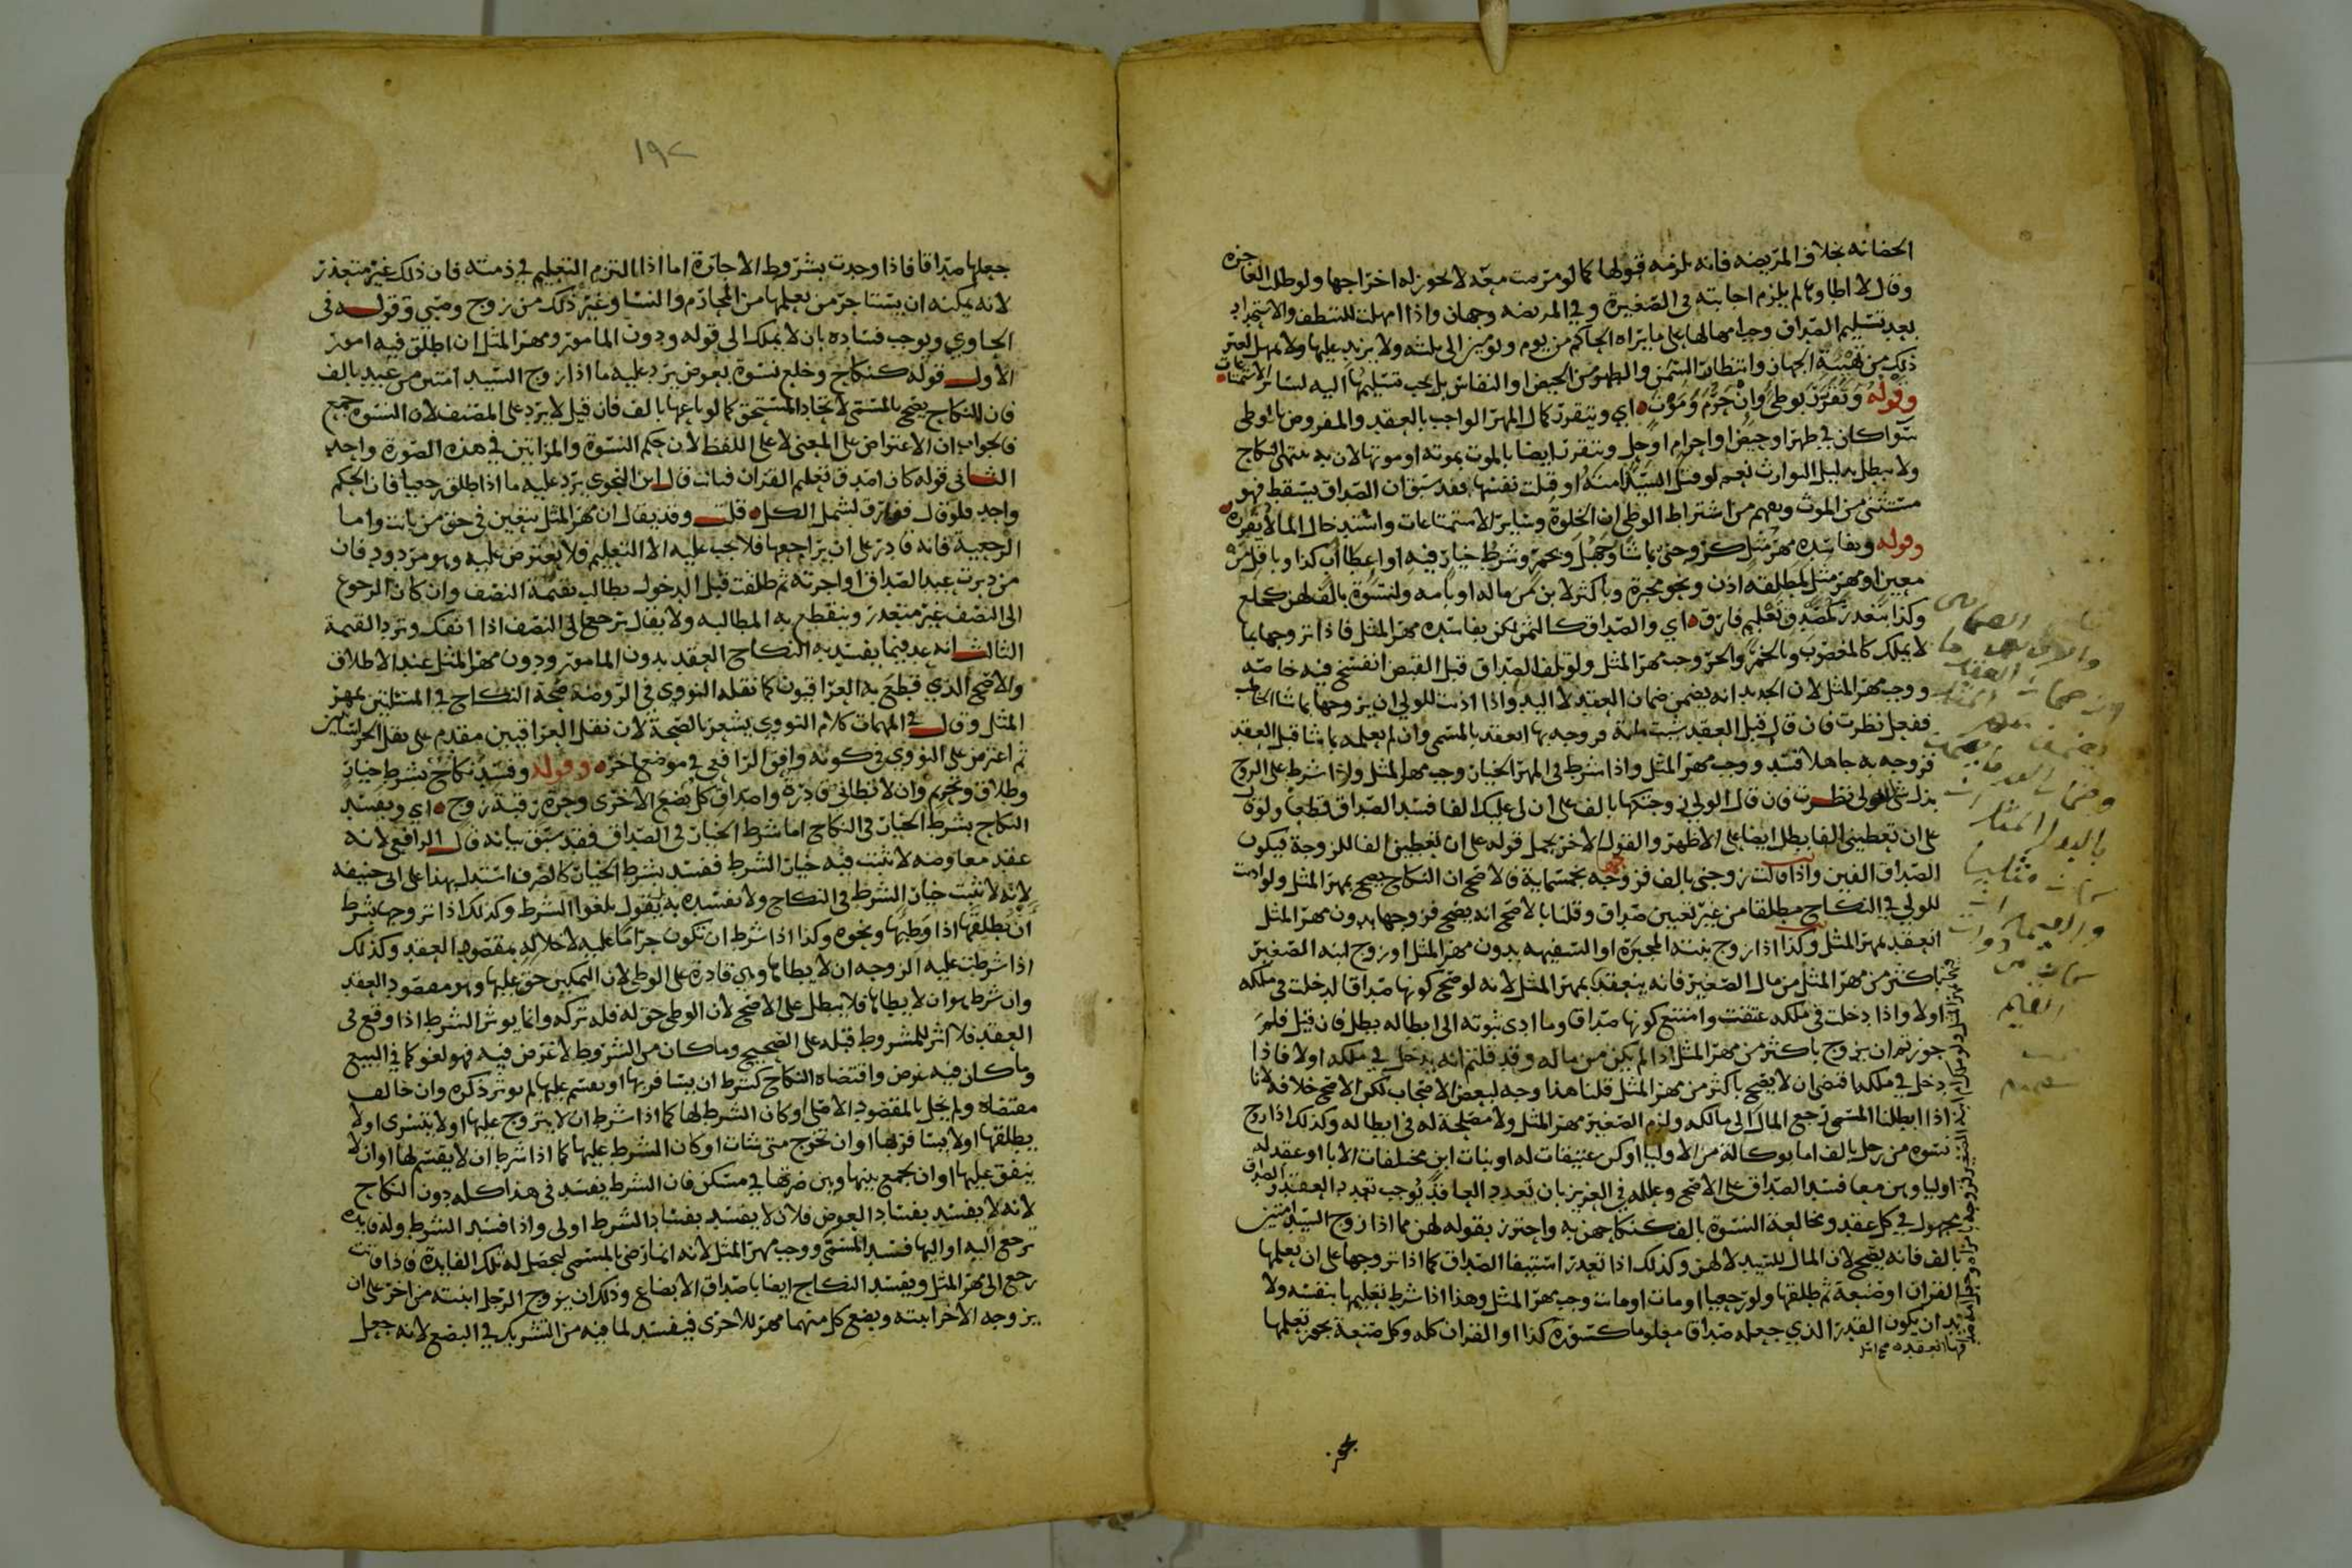 الحضانه بخلاف المريضه فانه يلزمه قبولها كما لو مرضت معه لا يجوز له اخراجها ولو طلب العاجزه
وقال لا اطاوها لم يلزم اجابته في الصغيرة وفي المريضه وجهان واذا امهلت للتنظف والاستحداد
بعد تسليم الصداق وجب امهالها على ما يراه الحاكم من يوم ويومين الى ثلثه ولا يزيد عليها ولا يمهل لغير
ذلك من تهيئة الجهاز وانتظار السمن والطهر من الحيض او النفاس بل يجب تسليمها اليه لسائر الاستمتاعات
وقوله وتقرر بوطئ وان حرم وموت اي ويتقرر كمال المهر الواجب بالعقد والمفروض بالوطى
سوا كان في طهر او حيض او احرام او حل ويتقرر ايضا بالموت بموته او موتها لان به ينتهي النكاح
ولا يبطل بدليل التوارث نعم لو قتل السيد امته او قتلت نفسها فقد سبق ان الصداق يسقط فهو
مستثنى من الموت ويفهم من اشتراط الوطي ان الخلوة وسائر الاستمتاعات واستدخال الما لا يقرره
وقوله وبفاسده مهر مثل كزوجني بما شا وجهل وبخمر وشرط خيار فيه او اعطا اب كذا وبا قل من
معين او مهر مثل لمطلقه اذن ونحو مجبرة وبا كثر لابن من ماله او بامه ولنسوة بالف لهن كخلع
وكذا بتعذر كمصدق تعليم فارق اي والصداق كالثمن لكن بفاسده مهر المثل فاذا تزوجها بما
لا يملك كالمغصوب وبالخمر والحر وجب مهر المثل ولو تلف الصداق قبل القبض انفسخ فيه خاصه
ووجب مهر المثل لان الجديد انه يضمن ضمان العقد لا اليد واذا اذنت للولي ان يزوجها بما شا الخاطب
ففعل نظرت فان قال قبل العقد شيت مائة فزوجه بها انعقد بالمسمى وان لم يعلمه بما شا قبل العقد
فزوجه به جاهلا فسد ووجب مهر المثل واذا شرط في المهر الخيار وجب مهر المثل ولو اذا شرط على الزوج
بذل شي للولي نظرت فان قال الولي زوجتكها بالف على ان لي عليك الفا فسد الصداق قطعا ولو قال
على ان تعطيني الفا بطل ايضا على الاظهر والقول الاخر يحمل قوله على ان تعطيني الفا للزوجة فيكون
الصداق الفين واذا قالت زوجني بالف فزوجه بخمسماية فالاصح ان النكاح يصح بمهر المثل ولو اذنت
للولي في النكاح مطلقا من غير تعيين صداق وقلنا بالاصح انه يصح فزوجها بدون مهر المثل
انعقد بمهر المثل وكذا اذا زوج بنته المجبرة او السفيهه بدون مهر المثل او زوج ابنه الصغير
باكثر من مهر المثل من مال الصغير فانه ينعقد بمهر المثل لانه لو صح كونها صداقا لدخلت في ملكه
اولا واذا دخلت في ملكه عتقت وامتنع كونها صداقا وما ادى ثبوته الى ابطاله بطل فان قيل فلم
جوزتم ان يزوج باكثر من مهر المثل اذا لم يكن من ماله وقد قلتم انه يدخل في ملكه اولا فاذا
دخل في ملكه اقتضى ان لا يصح باكثر من مهر المثل قلنا هذا وجه لبعض الاصحاب لكن الاصح خلافه لانا
اذا ابطلنا المسمى رجع المال الى مالكه ولزم الصغير مهر المثل ولا مصلحة له في ابطاله وكذلك اذا زوج
نسوه من رجل بالف اما بوكالة من الاوليا او كن عتيقات له او بنات ابن مختلفات الابا او عقد له
اوليا وهن معا فسد الصداق على الاصح وعلله في العزيز بان تعدد العاقد يوجب تعدد العقد والصداق
مجهول في كل عقد ومخالعة النسوة بالف كنكاحهن به واحترز بقوله لهن مما اذا زوج السيد امتين
بالف فانه يصح لان المال للسيد لا لهن وكذلك اذا تعذر استيفا الصداق كما اذا تزوجها على ان يعلمها
القران او صنعة ثم طلقها ولو رجعيا او مات او ماتت وجب مهر المثل وهذا اذا شرط تعليمها بنفسه ولا
بد ان يكون القدر الذي جعله صداقا معلوما كسورة كذا او القران كله وكل صنعة يجوز تعلمها
١٩٢
جعلها صداقا فاذا وجدت بشروط الاجارة اما اذا التزم التعليم في ذمته فان ذلك غير متعذر
لانه يمكنه ان يستاجر من يعلمها من المحارم والنسا وغير ذلك من زوج وصبي وقوله في
الحاوي ويوجب فساده بان لا يملك الى قوله ودون المامور ومهر المثل ان اطلق فيه امور
الاول قوله كنكاح وخلع نسوة بعوض يرد عليه ما اذا زوج السيد امتين من عبيد بالف
فان النكاح يصح بالمسمى لاتحاد المستحق كما لو باعها بالف فان قيل لا يرد على المصنف لان النسوة جمع
فالجواب ان الاعتراض على المعنى لا على اللفظ لان حكم النسوة والمراتين في هذه الصورة واحد
الثاني قوله كان اصدق تعليم القران فبانت قال ابن النحوي يرد عليه ما اذا طلق رجعيا فان الحكم
واحد فلو قال ففارق لشمل الكل قلت وقد يقال ان مهر المثل يتعين في حق من بانت واما
الرجعية فانه قادر على ان يراجعها فلا يجب عليه الا التعليم فلا يعترض عليه وهو مردود فان
من دبرت عبد الصداق او اجرته ثم طلقت قبل الدخول يطالب بقيمة النصف وان كان الرجوع
الى النصف غير متعذر وينقطع به المطالبه ولا يقال ترجع الى النصف اذا انفك وترد القيمة
الثالث انه عد فيما يفسد به النكاح العقد بدون المامور ودون مهر المثل عند الاطلاق
والاصح الذي قطع به العراقيون كما نقله النووي في الروضة صحة النكاح في المسئلتين بمهر
المثل وقال في المهمات كلام النووي يشعر بالصحة لان نقل العراقيين مقدم على نقل الخراسانيين
ثم اعترض على النووي في كونه وافق الرافعي في موضع اخر وقوله وفسد نكاح بشرط خيار
وطلاق وتحريم وان لا تطاني قادرة واصداق كل بضع الاخرى وحرة رقبة زوج اي ويفسد
النكاح بشرط الخيار في النكاح اما شرط الخيار في الصداق فقد سبق بيانه قال الرافعي لانه
عقد معاوضه لا يثبت فيه خيار الشرط ففسد بشرط الخيار كالصرف استدل بهذا على ابي حنيفه
لانه لا يثبت خيار الشرط في النكاح ولا يفسده به بل يقول بلغوا الشرط وكذلك اذا تزوجها بشرط
ان يطلقها اذا وطئها ونحوه وكذا اذا شرط ان تكون حراما عليه لاخلاله بمقصود العقد وكذلك
اذا شرطت عليه الزوجه ان لا يطاها وهي قادرة على الوطي لان التمكين حق عليها وهو مقصود العقد
وان شرط هو ان لا يطاها فلا يبطل على الاصح لان الوطى حق له فله تركه وانما يوثر الشرط اذا وقع في
العقد فلا اثر للمشروط قبله على الصحيح وما كان من الشروط لا غرض فيه فهو لغو كما في البيع
وما كان فيه غرض واقتضاه النكاح كشرط ان يسافر بها او يقسم عليها لم يوثر ذكره وان خالف
مقتضاه ولم يخل بالمقصود الاصلي او كان الشرط لها كما اذا شرط ان لا يتزوج عليها او لا يتسرى او لا
يطلقها او لا يسافر بها او ان تخرج متى شات او كان الشرط عليها كما اذا شرط ان لا يقسم لها او ان لا
ينفق عليها او ان يجمع بينها وبين ضرتها في مسكن فان الشرط يفسد في هذا كله دون النكاح
لانه لا يفسد بفساد العوض فلان لا يفسد بفساد الشرط اولى واذا فسد الشرط وله فايده
ترجع اليه او اليها فسد المسمى ووجب مهر المثل لانه انما رضى بالمسمى ليحصل له تلك الفايدة فاذا فاتت
رجع الى مهر المثل ويفسد النكاح ايضا باصداق الابضاع وذلك ان يزوج الرجل ابنته من اخر على ان
يزوجه الاخر ابنته وبضع كل منهما مهر للاخرى فيفسد لما فيه من التشريك في البضع لانه جعل